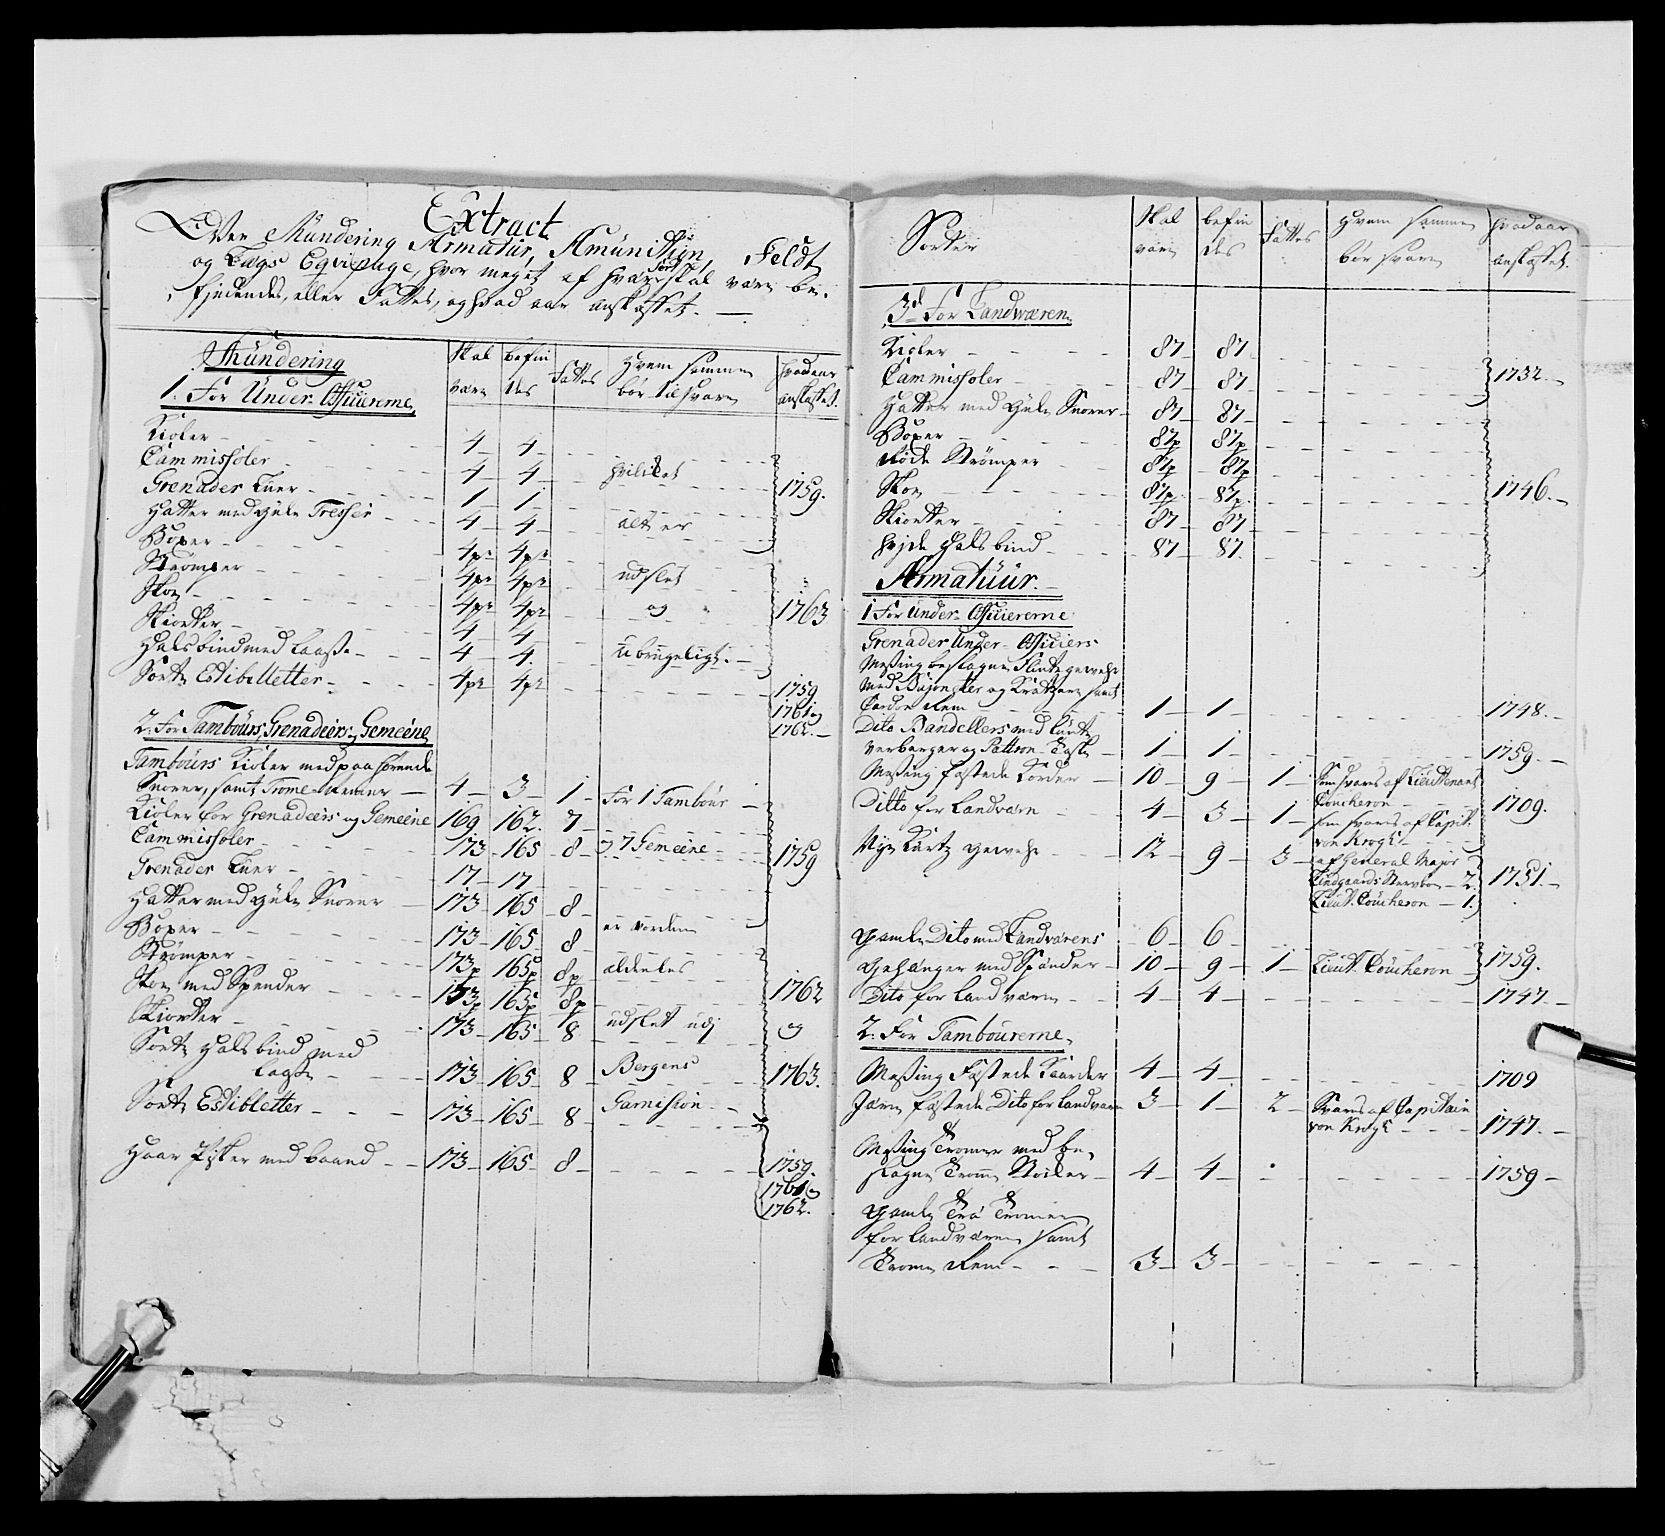 Extract
Over Mündering Armatür, Amünition, Feldt
og Laegs Eqvipage, hvor meget af hver Sort skal være be-
findendes, eller Fattes, og hvad aar anskaffet. —
Mündering
Skal være
befindes
Fattes
Hvem samme bør tilsvare
Hvad aar anskaffet.
1. For Under-Officiererne
Kioler — 4 — 4 —
Cammisoler — 4 — 4 — hvilket
Grenader Luer — 1 — 1 — 1759.
Hatter med gule Tresser — 4 — 4 — alt er
Boxer — 4pr 4pr
Strömper — 4pr 4pr — udslet
Skoe — 4pr 4pr — og — 1763
Skiorter — 4 — 4
Halsbind med Laasse — 4 — 4. übrügeligt. —
Sorte Estibelletter — 4pr 4pr — 1759
1761 og
1762. —
2. For Tambours, Grenadeers og Gemeene
Tambours Kioler med paahørende
Snorer, samt Trome Remer — 4 — 3 — 1 — For 1 Tambour —
Kioler for Grenadeers og Gemeene 169 162. 7 —
Cammisoler — 173 — 165 8 — 7 Gemeene — 1759
Grenader Luer — 17 — 17 —
Hatter med gule Snorer — 173 — 165 — 8 —
Boxer — 173 — 165 — 8 — er vorden
Strømper — 173p 165p 8p aldeles
Skoe med Spender — 173p 165p 8p — 1762
Skiorter — 173 — 165 8 udslet udj og
Sorte Halsbind med
Laase — 173 — 165 — 8 — Bergens 1763.
Sorte Estibletter — 173 — 165 — 8 — Garnision —
Haar Pisker med baand — 173 — 165 — 8 — 1759.
1761 og
1762.
Sorter
Skal være
befindes
Fattes
Hvem samme bør svare
Hvad aar anskaffet.
3d For Landværen
Kioler — 87 — 87
Cammisoler — 87 — 87 — 1732. —
Hatter med gule Snorer — 87 — 87 —
Boxer — 87p 87p
Røde Strømper 87p — 87p
Skoe — 87p. — 87p. 1746. —
Skiorter — 87 — 87 —
hvide Halsbind — 87 — 87
Armatüür. —
1 For Under-Officiererne
Grenader Under-Officiers
Messing beslagne Flinte gewehr
med Bajonetter og Kratzere samt
Cardon Rem — 1 — 1 — 1748. —
Dito Bandellers med Lunte
verberger og Patron-Taske — 1 — 1 — 1759. —
Messing fæstede Korder — 10 — 9 — 1 — Som svares af Lieutenant
Coucheron — 1709.
Ditto for Landværn — 4 — 3 — 1 — som svares af Capit.
von Krogh —
Nye Kürtz gewehr — 12 — 9 — 3 — af General Major
Lindgaards Stervboe — 2. 1751. —
Lieut. Coucheron — 1.
Gamle Dito med Landværens — 6 — 6 —
Gehænger med Spænder — 10 — 9 — 1 — Lieut. Coucheron — 1759.
Dito for Landværn — 4 — 4 — 1747 —
2. For Tambourerne,
Messing Fæstede Kaarder 4 — 4 — 1709
Jærn fæstede Dito for Landværn 3 — 1 — 2 — Svares af Capitain
von Krogh — 1747. —
Messing Tromer med be-
slagne Trom Stoiler — 4 — 4 — 1759 —
Gamle Træ Tromer
for Landværn samt
Trome Rem — 3 — 3 —